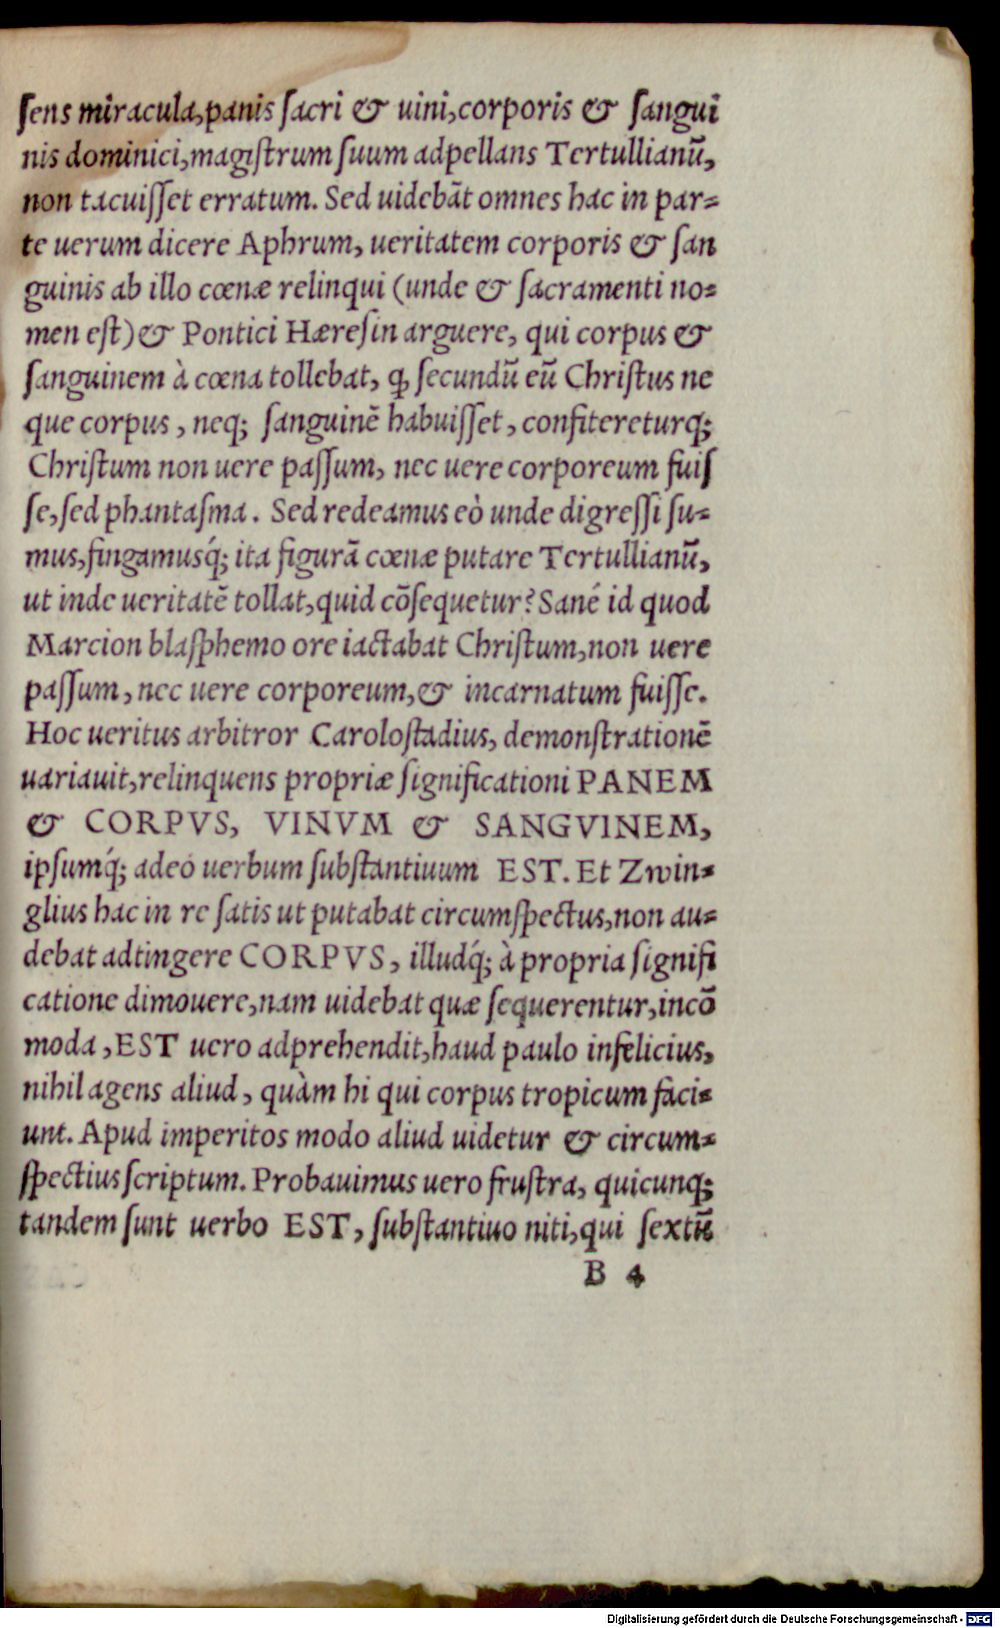 ſens miracula,panis ſacri & uini,corporis & ſangui
nis dominici,magiſtrum ſuum adpellans Tertullianũ,
non tacuiſſet erratum. Sed uidebãt omnes hac in par=
te uerum dicere Aphrum, ueritatem corporis & ſan
guinis ab illo cœnæ relinqui (unde & ſacramenti no=
men eſt) & Pontici Hæreſin arguere, qui corpus &
ſanguinem à cœna tollebat, ꝙ ſecundũ eũ Chriſtus ne
que corpus, neq; ſanguinẽ habuiſſet, confitereturq;
Chriſtum non uere paſſum, nec uere corporeum fuiſ
ſe,ſed phantaſma. Sed redeamus eò unde digreſſi ſu=
mus,fingamusq́; ita figurã cœnæ putare Tertullianũ,
ut inde ueritatẽ tollat,quid cõſequetur? Sané id quod
Marcion blaſphemo ore iactabat Chriſtum,non uere
paſſum, nec uere corporeum,& incarnatum fuiſſe.
Hoc ueritus arbitror Caroloſtadius, demonſtrationẽ
uariauit,relinquens propriæ ſignificationi PANEM
& CORPVS, VINVM & SANGVINEM,
ipſumq́; adeó uerbum ſubſtantiuum EST. Et Zwin=
glius hac in re ſatis ut putabat circumſpectus,non au=
debat adtingere CORPVS, illudq́; à propria ſignifi
catione dimouere,nam uidebat quæ ſequerentur,incõ
moda, EST uero adprehendit,haud paulo infelicius,
nihil agens aliud, quàm hi qui corpus tropicum faci=
unt. Apud imperitos modo aliud uidetur & circum=
ſpectius ſcriptum. Probauimus uero fruſtra, quicunq;
tandem ſunt uerbo EST, ſubſtantiuo niti,qui ſextũ
B 4
Digitalisierung gefördert durch die Deutsche Forschungsgemeinschaft - DFG